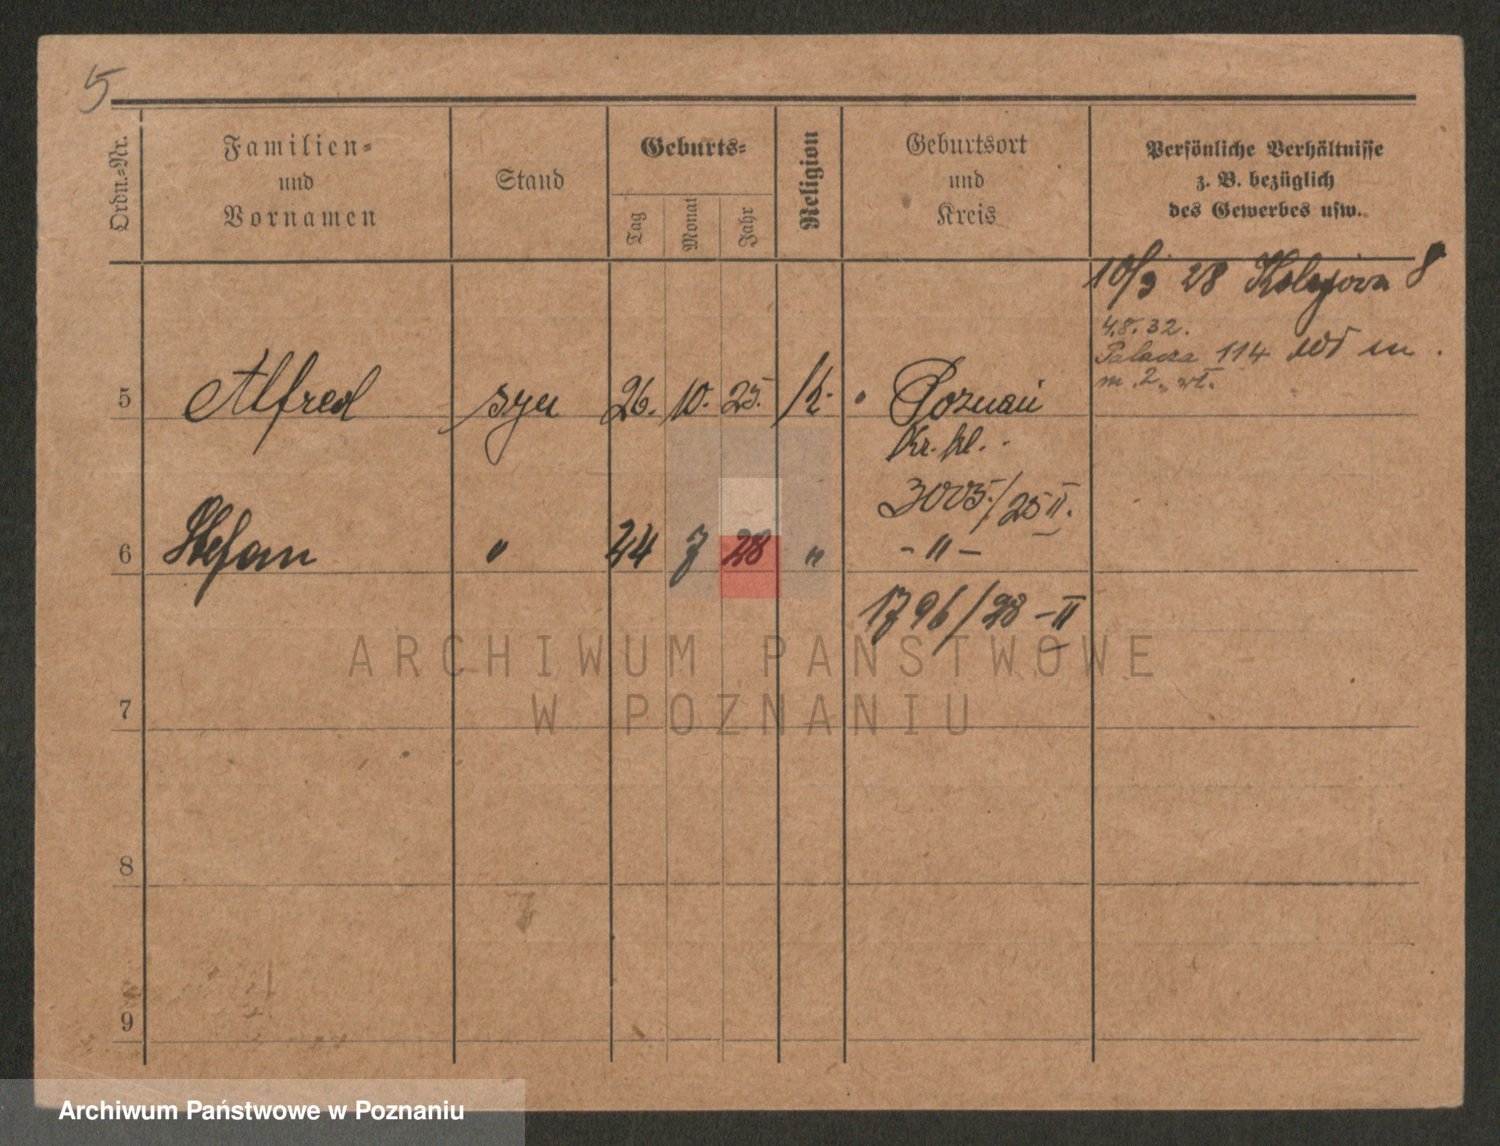 5
Ordn.=Nr.
Familien=
und
Vornamen
Stand
Geburts=
Tag
Monat
Jahr
Religion
Geburtsort
und
Kreis
Persönliche Verhältnisse
z. B. bezüglich
des Gewerbes usw.
10/9 28 Kolejowa 8
4.8.32.
Palacza 114
m. 2. wł.
5 Alfred syn 26. 10. 25. /k. Poznań
Kr. kl.
3005/25 II.
6 Stefan " 24 7 28 " - " -
1796/28 - II
ARCHIWUM PAŃSTWOWE
W POZNANIU
7
8
9
Archiwum Państwowe w Poznaniu